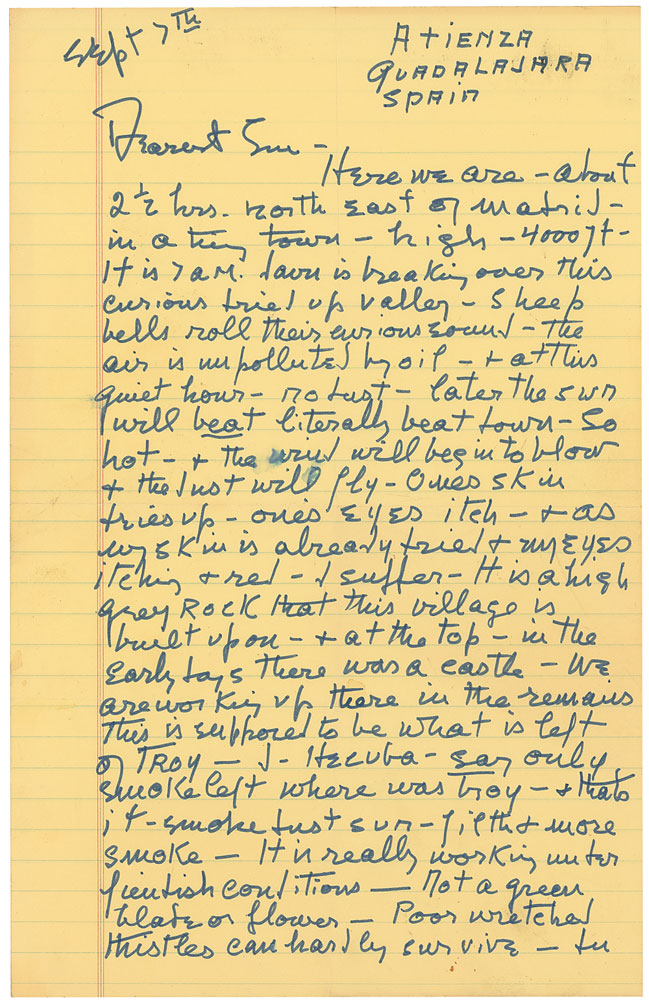 Sept 7th
ATIENZA
GUADALAJARA
SPAIN
Dearest Sue -
Here we are - about
2 1/2 hrs. north east of Madrid -
in a tiny town - high - 4000 ft -
It is 7 A.M. dawn is breaking over this
curious dried up valley - Sheep
bells roll their curious sound - the
air is unpolluted by oil - + at this
quiet hour - no dust - later the sun
will beat literally beat down - So
hot - + the wind will begin to blow
+ the dust will fly - Ones skin
dries up - one's eyes itch - + as
my skin is already dried + my eyes
itching + red - I suffer - It is a high
grey Rock that this village is
built upon - + at the top - in the
early days there was a castle - We
are working up there in the remains
This is supposed to be what is left
of TROY - I - Hecuba - say only
smoke left where was Troy - + thats
it - smoke dust sun - filth + more
smoke - It is really working under
fiendish conditions - Not a green
blade or flower - Poor wretched
thistles can hardly survive -